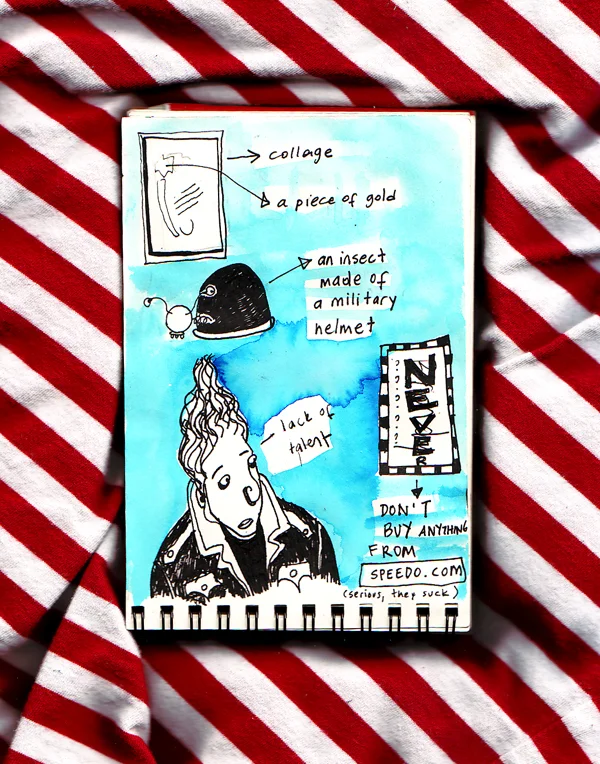 collage
a piece of gold
an insect
made of
a military
helmet
lack of
talent
NEVER
DON'T
BUY ANYTHING
FROM
SPEEDO.COM
(serious, they suck)